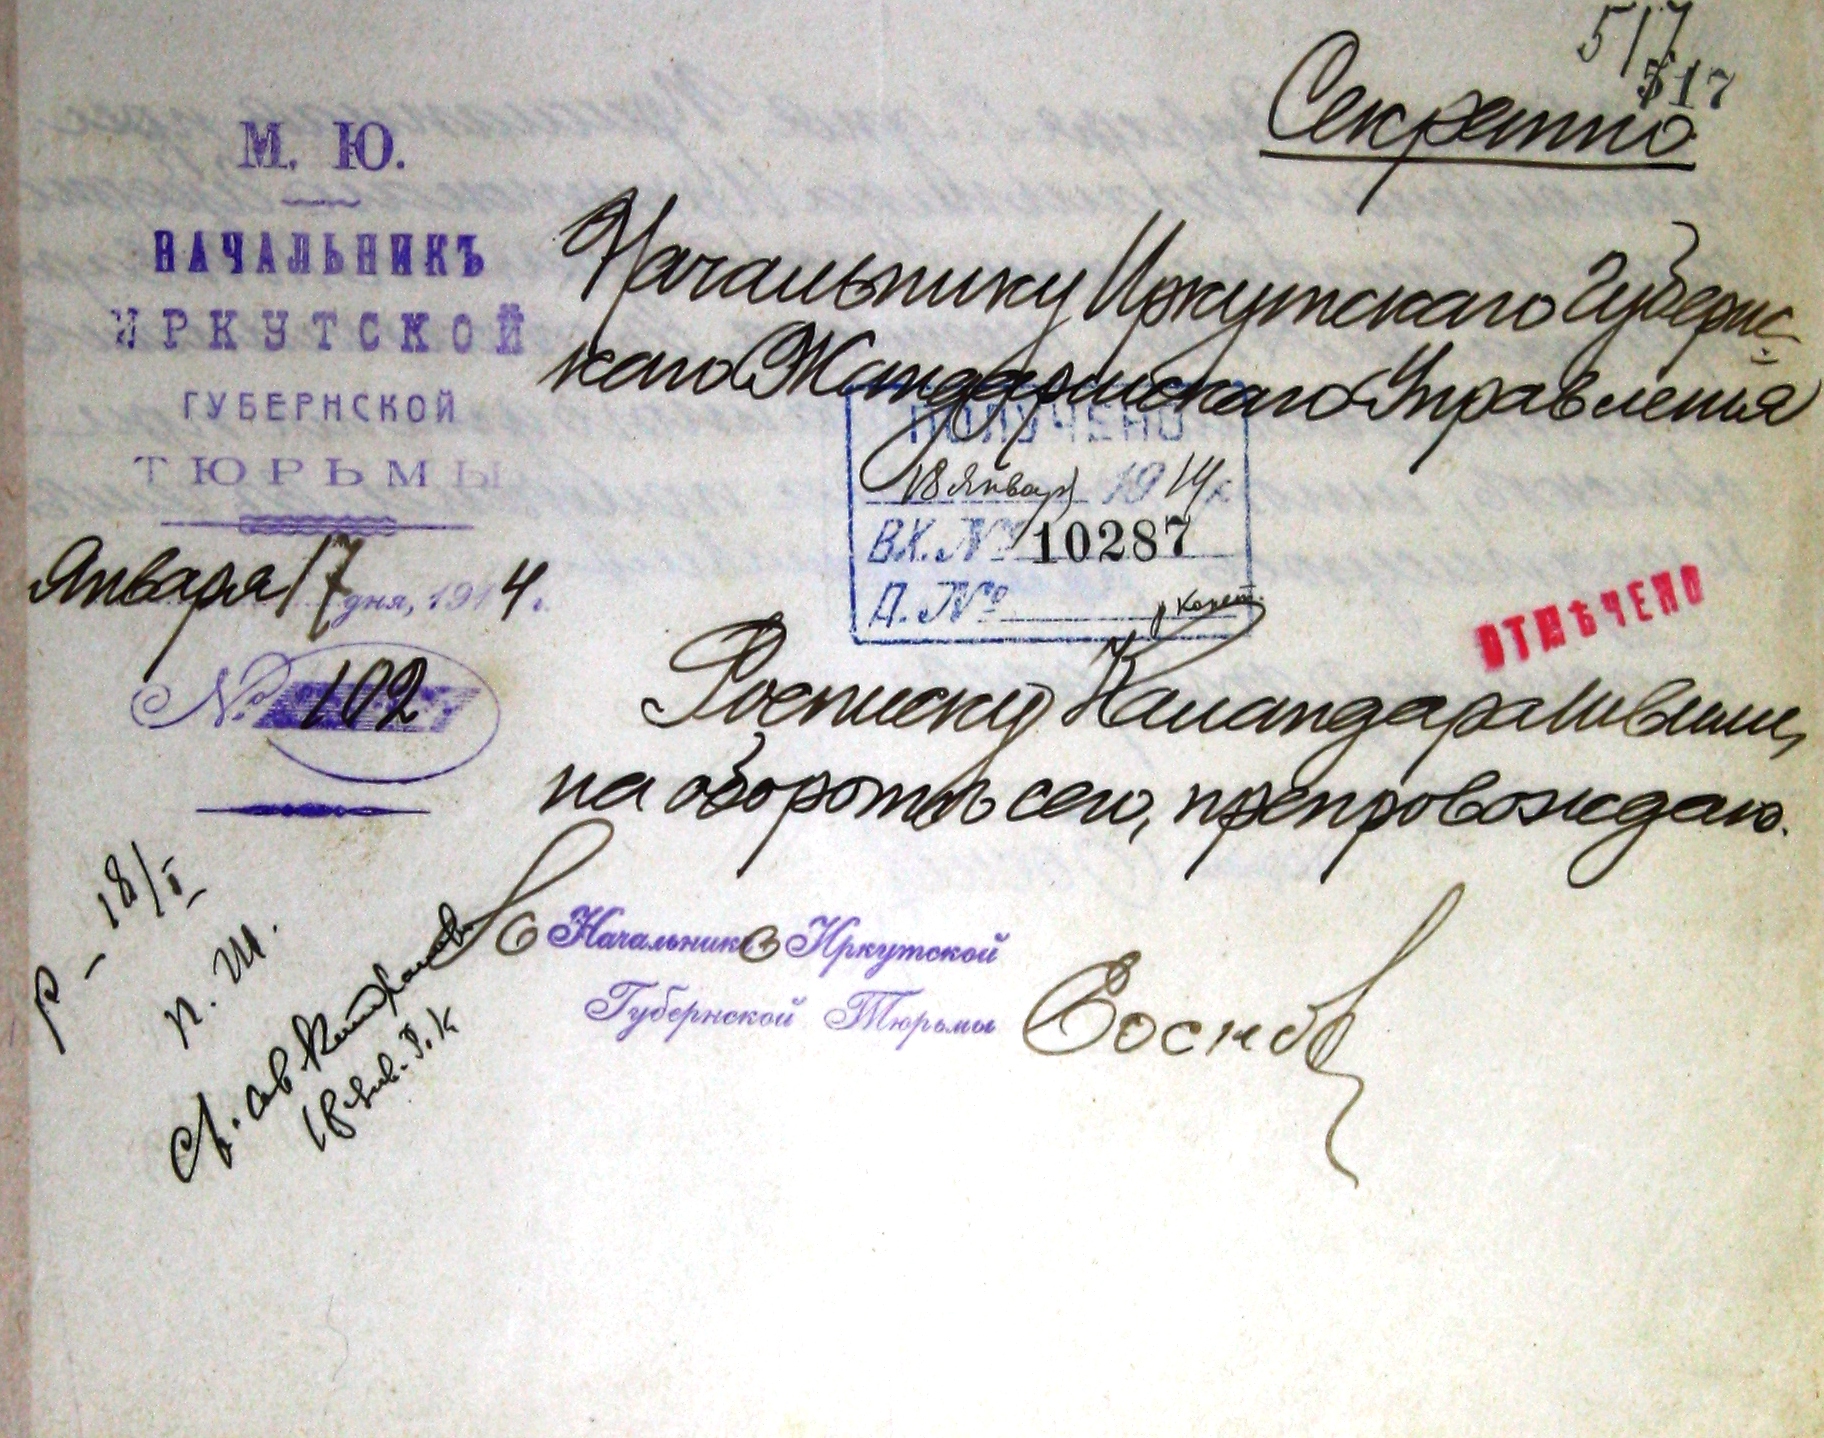 517
517
Секретно
М. Ю.
НАЧАЛЬНИКЪ
ИРКУТСКОЙ
ГУБЕРНСКОЙ
ТЮРЬМЫ
Января 17 дня, 1914 г.
№ 102
Начальнику Иркутскаго Губернс-
каго Жандармскаго Управленія
ПОЛУЧЕНО
18 Января 1914 г.
ВХ. № 10287
Д. №
ОТМѢЧЕНО
Росписку Каландарашвили,
на оборотѣ сего, препровождаю.
Начальникъ Иркутской
Губернской Тюрьмы
18/I
п. Ш.